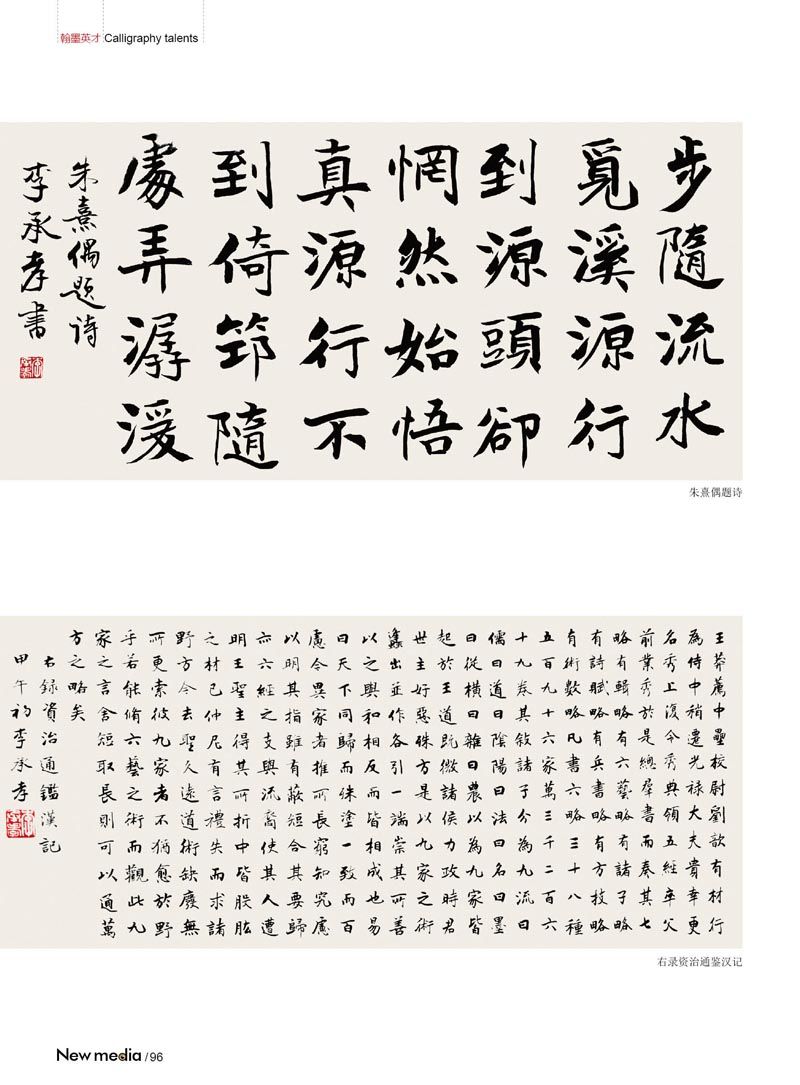 翰墨英才 Calligraphy talents
步隨流水
覓溪源行
到源頭卻
惘然始悟
真源行不
到倚筇隨
處弄潺湲
朱熹偶题诗
李承孝書
朱熹偶题诗
王莽薦中壘校尉劉歆有材行
為侍中稍遷光禄大夫貴幸更
名秀上復令秀典領五經卒父
前業秀於是總羣書而奏其七
略有輯略有六藝略有諸子略
有詩賦略有兵書略有方技略
有術數略凡書六略三十八種
五百九十六家萬三千二百六
十九卷其敘諸子分為九流曰
儒曰道曰陰陽曰法曰名曰墨
曰從橫曰雜曰農以為九家皆
起於王道既微諸侯力政時君
世主好惡殊方是以九家之術
蠭出並作各引一端崇其所善
以之與和相反而皆相成也易
曰天下同歸而殊塗一致而百
慮今異家者推所長窮知究慮
以明其指雖有蔽短合其要歸
亦六經之支與流裔使其人遭
明王聖主得其所折中皆股肱
之材已仲尼有言禮失而求諸
野方今去聖久遠道術缺廢無
所更索彼九家者不猶愈於野
乎若能脩六藝之術而觀此九
家之言舍短取長則可以通萬
方之略矣
右錄資治通鑑漢記
甲午初李承孝
右录资治通鉴汉记
New media / 96